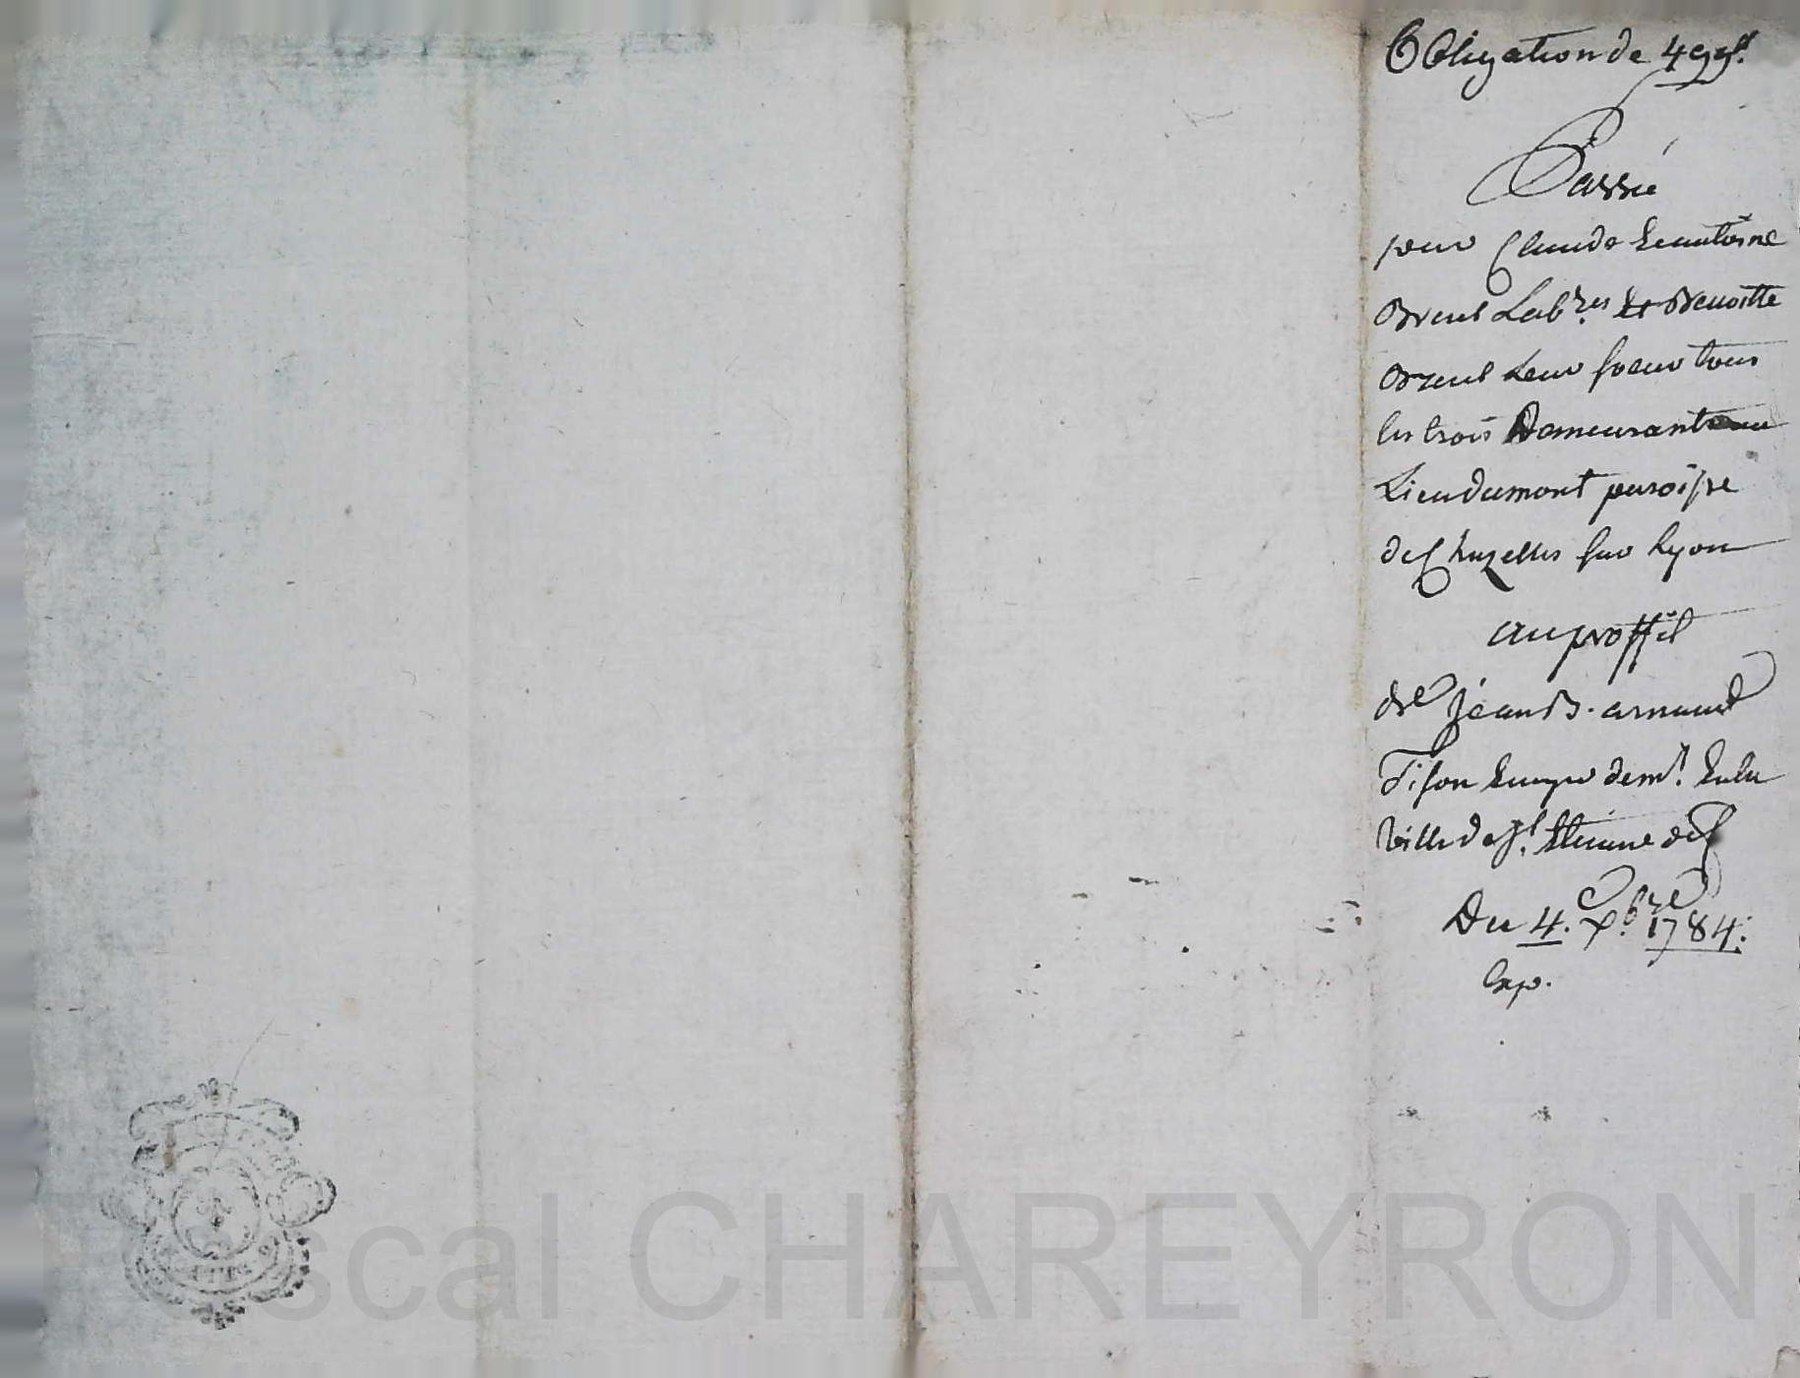 Obligation de 499ᶧ.
Passé
par Claude & antoine
Breul Labres & Benoitte
Breul Leur soeur tous
les trois Demeurant au
Lieu dumont paroisse
de Chazelles sur Lyon
au proffit
de Jean B. arnaud
Tison demt. En la
Ville de St. Etienne
Du 4. Xbre 1784.
Exp.
scal CHAREYRON